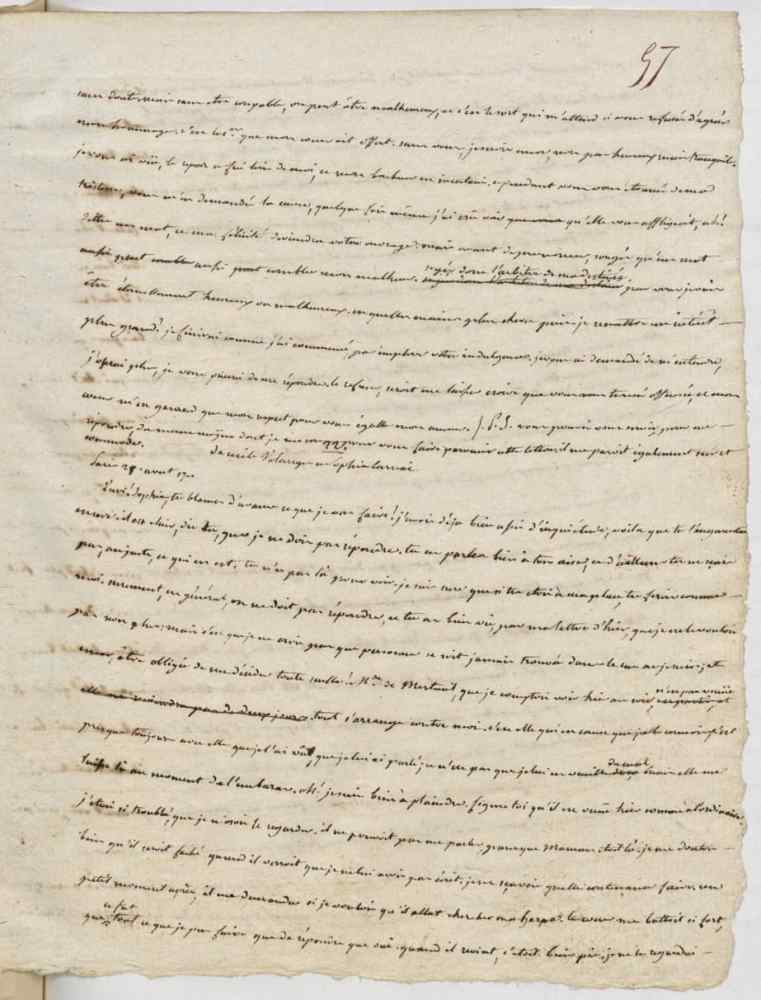 57
sans doute; mais sans etre coupable, on peut être malheureux, et c'est le sort qui m'attend si vous refusés d'agréer
mon hommage. c'est le 1er que mon coeur ait offert. sans vous, je serois encore, non pas heureux, mais tranquille.
je vous ai vüe, le repos a fui loin de moi, et mon bonheur est incertain. cependant vous vous etonnés de ma
tristesse, vous m'en demandés la cause, quelque fois même j'ai crû voir qu'elle vous affligeoit. ah!
dittes un mot, et ma félicité deviendra votre ouvrage. mais avant de prononcer, songés qu'un mot
aussi peut combler mon malheur. soyés donc l'arbitre de ma destinée. par vous je vais
être éternellement heureux ou malheureux. en quelles mains plus cheres puis-je remettre un interêt
plus grand? je finirai comme j'ai commencé, par implorer votre indulgence. je vous ai demandé de m'entendre,
j'oserai plus, je vous prierai de me répondre. le refuser, seroit me laisser croire que vous vous trouvés offensée, et mon
coeur m'en garant que mon respect pour vous égalle mon amour. P.S. vous pouvés vous servir, pour me
répondre, du meme moyen dont je me sers pour vous faire parvenir cette lettre; il me paroit également sur et
commode.
de cecile Volanges a Sophie Carnai
18 aout 17
quoi! Sophie, tu blames d'avance ce que je vas faire! j'avois déja bien assés d'inquiétudes, voila que tu l'augmentes
encore. il est clair, dis tu, que je ne dois pas répondre. tu en parles bien à ton aise, et d'ailleurs tu ne sçais
pas, au juste, ce qui en est; tu n'es pas là pour voir. je suis sure que si tu etois à ma place, tu ferois comme
moi. surement, en général, on ne doit pas répondre, et tu as bien vu, par ma lettre d'hier, que je ne le voulois
pas non plus; mais c'est que je ne crois pas que personne se soit jamais trouvé dans le cas ou je suis; et
encor, être obligée de me décider toute seulle! Mde de Merteuil, que je comptois voir hier au soir, n'est pas venüe
tout s'arrange contre moi. c'est elle qui est cause que je le connois. c'est
presque toujours avec elle que je l'ai vû, que je lui ai parlé; ce n'est pas que je lui en veuille du mal, mais elle me
laisse là au moment de l'embaras. oh! je suis bien à plaindre. figure toi qu'il est venu hier comme à l'ordinaire.
j'etois si troublée, que je n'osois le regarder. il ne pouvoit pas me parler, parceque Maman étoit là. je me doutois
bien qu'il seroit faché quand il verroit que je ne lui avois pas écrit. je ne sçavois quelle contenance faire. un
petit moment après, il me demanda si je voulois qu'il allat chercher ma harpe. le coeur me battoit si fort,
que ce fut tout ce que je pus faire que de répondre que oui. quand il revint, c'étoit bien pis. je ne le regardai